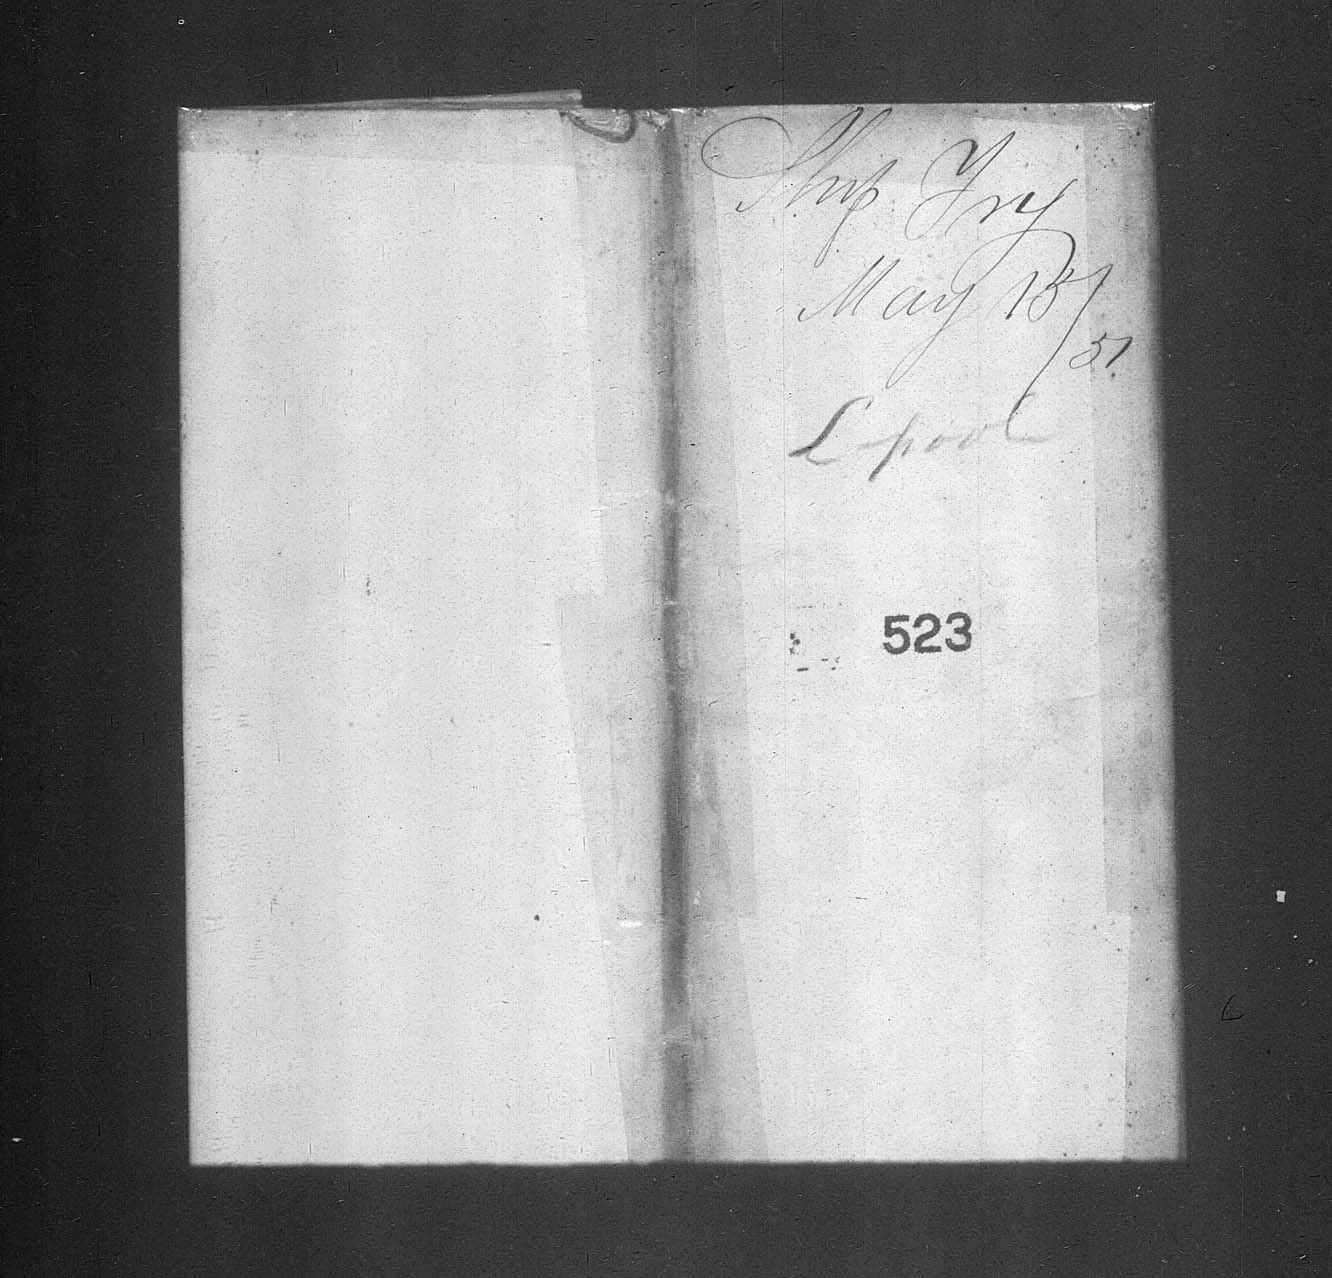 Ship Try
May 15/51.
L-pool
523